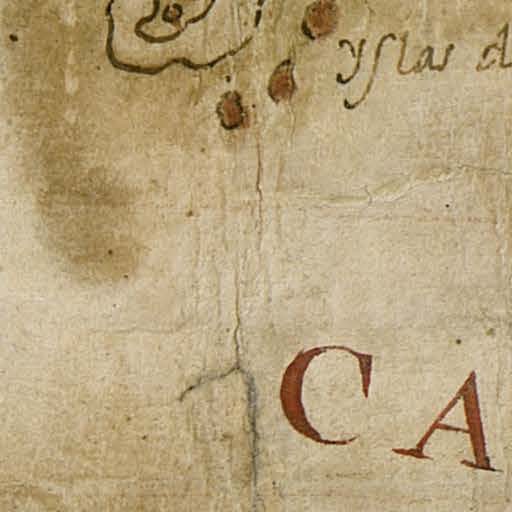 yslas d
CA